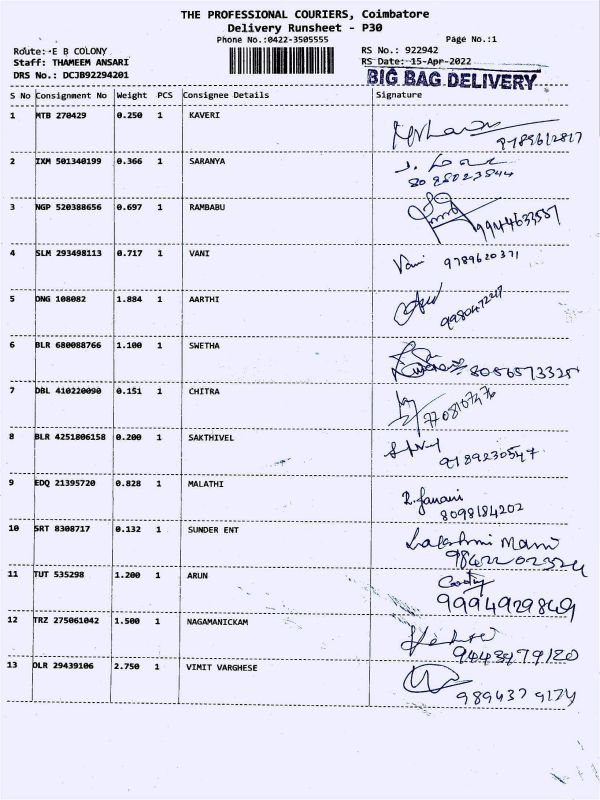 THE PROFESSIONAL COURIERS, Coimbatore
Delivery Runsheet - P30
Phone No.:0422-3505555
Page No.:1
Route:-E B COLONY
RS No.: 922942
Staff: THAMEEM ANSARI
RS Date: 15-Apr-2022
DRS No.: DCJB92294201
BIG BAG DELIVERY
S No Consignment No Weight PCS Consignee Details Signature
1 MTB 270429 0.250 1 KAVERI
9789612817
2 IXM 501340199 0.366 1 SARANYA
8098023844
3 NGP 520388656 0.697 1 RAMBABU
9944633587
4 SLM 293498113 0.717 1 VANI Vani 9789620371
5 DNG 108082 1.884 1 AARTHI
6 BLR 680088766 1.100 1 SWETHA
7 DBL 410220090 0.151 1 CHITRA
8 BLR 4251806158 0.200 1 SAKTHIVEL
9189230547
9 EDQ 21395720 0.828 1 MALATHI
8098184202
10 SRT 8308717 0.132 1 SUNDER ENT Lakshmi Mani
9842202324
11 TUT 535298 1.200 1 ARUN
9994929849
12 TRZ 275061042 1.500 1 NAGAMANICKAM
9443479120
13 DLR 29439106 2.750 1 VIMIT VARGHESE
9894379174